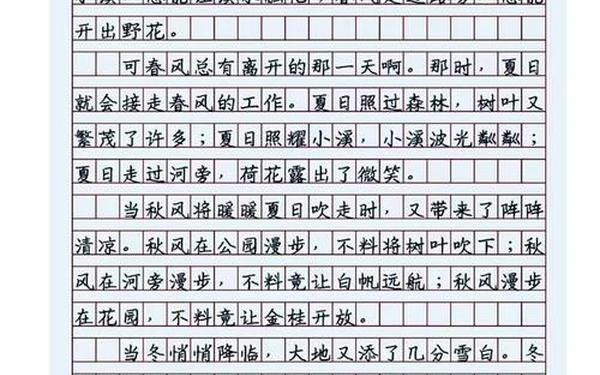 开出野花。
可春风总有离开的那一天啊。那时，夏日
就会接走春风的工作。夏日照过森林，树叶又
繁茂了许多；夏日照耀小溪，小溪波光粼粼；
夏日走过河旁，荷花露出了微笑。
当秋风将暖暖夏日吹走时，又带来了阵阵
清凉。秋风在公园漫步，不料将树叶吹下；秋
风在河旁漫步，不料竟让白帆远航；秋风漫步
在花园，不料竟让金桂开放。
当冬悄悄降临，大地又添了几分雪白。冬